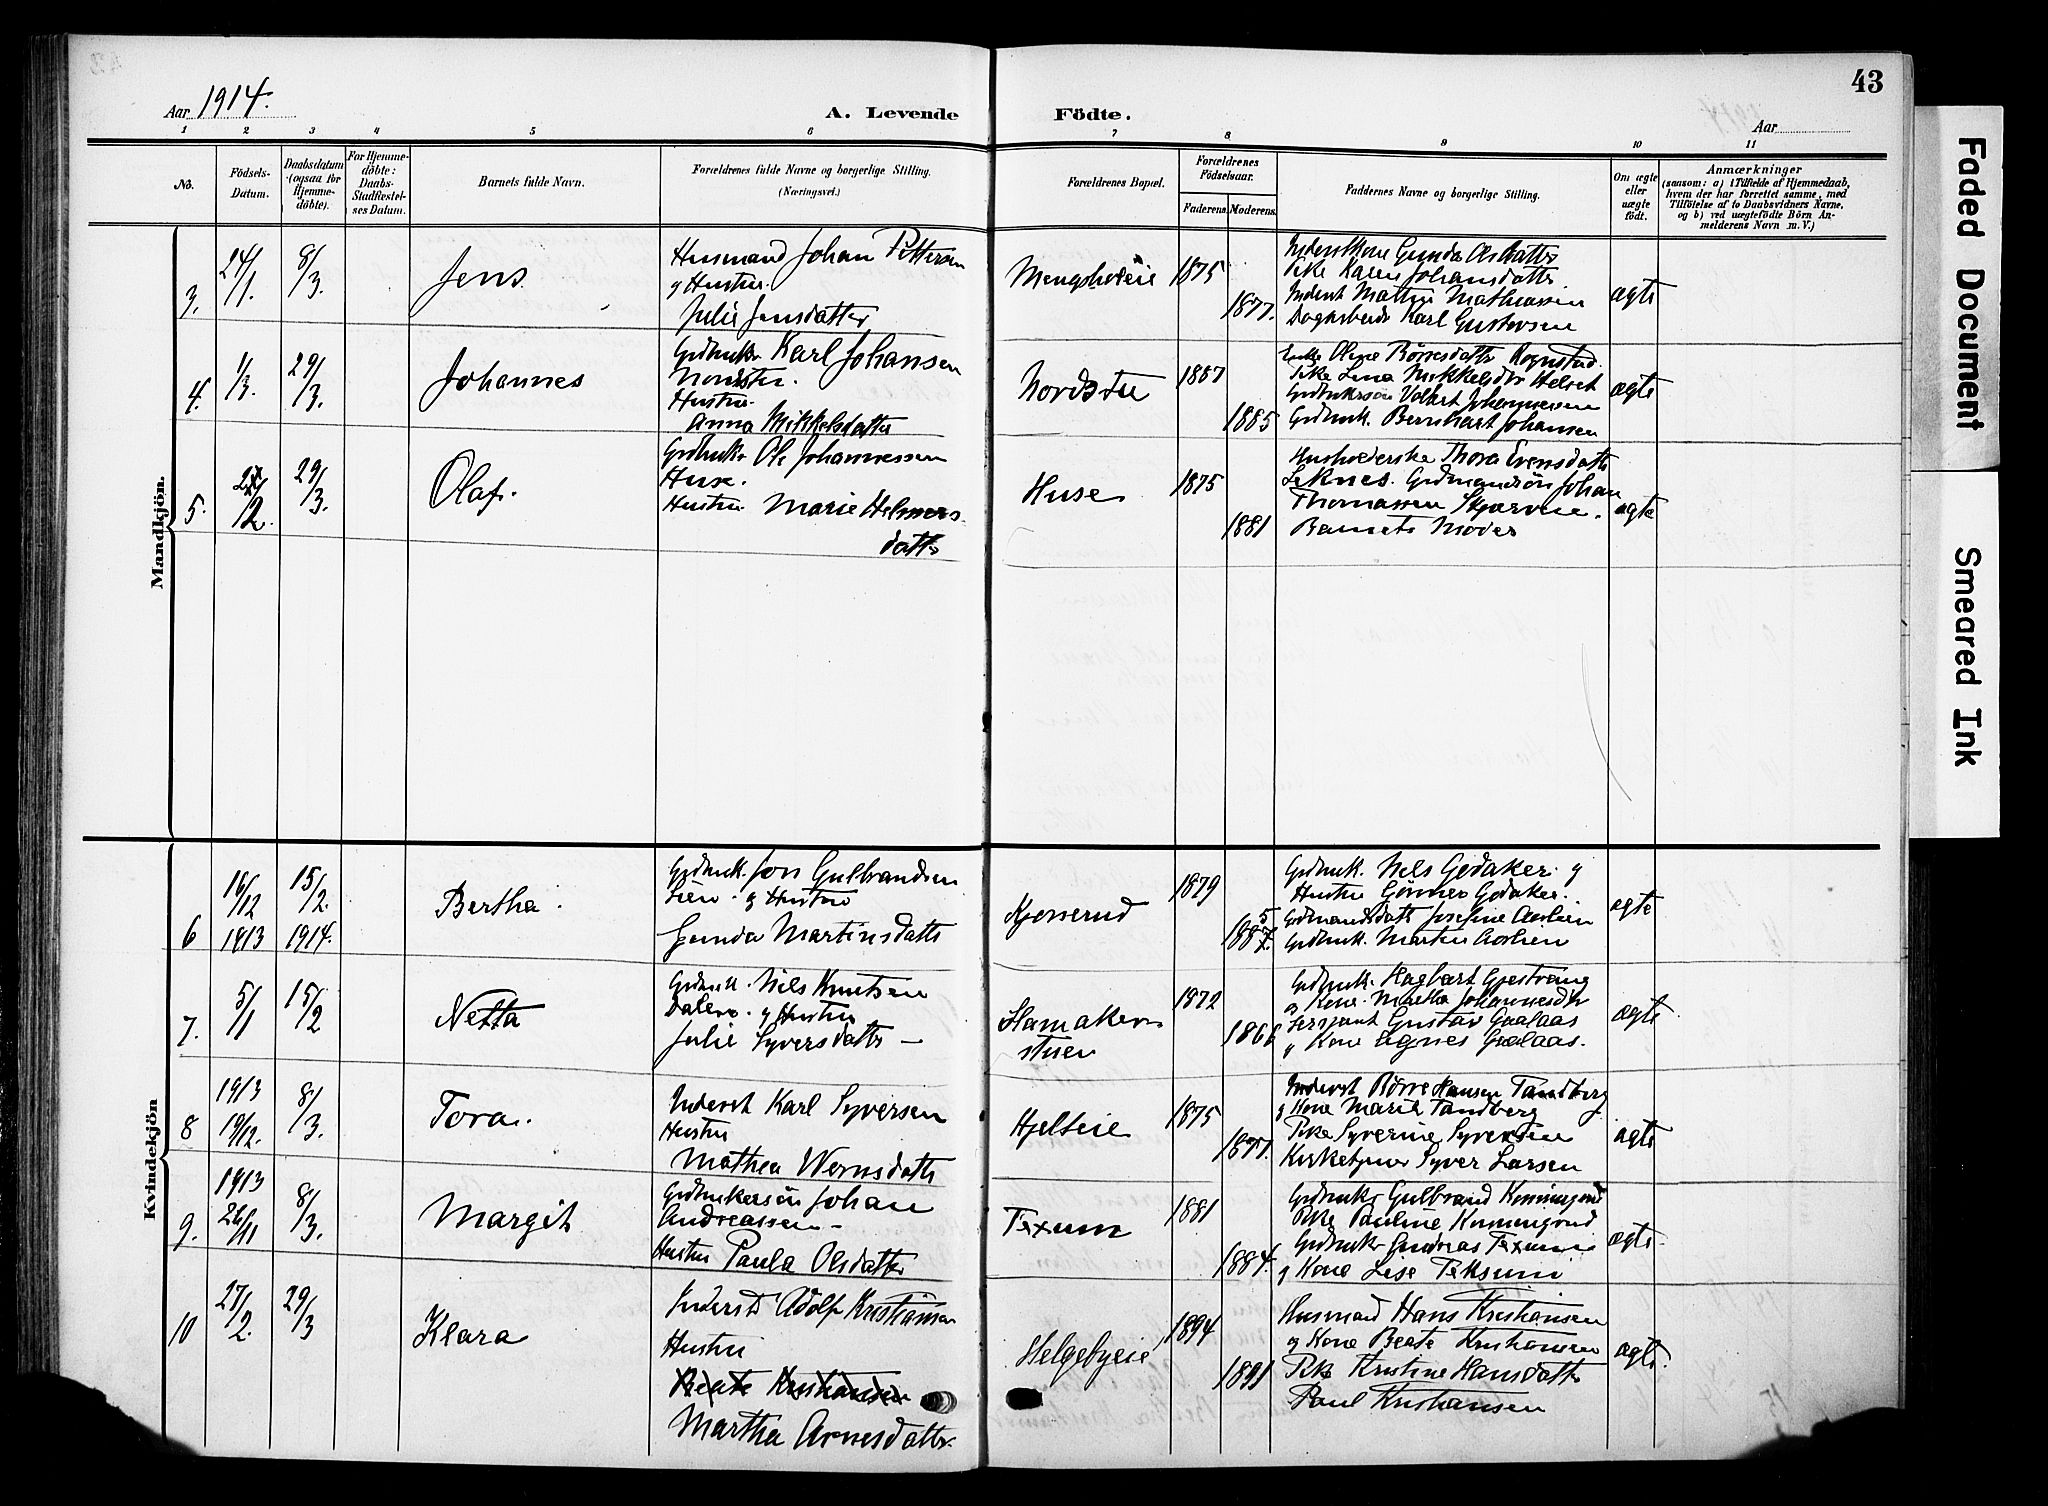 43
Aar 1914.
A. Levende Födte.
Aar
1 2 3 4 5 6 7 8 9 10 11
No.
Födsels-Datum.
Daabsdatum (ogsaa for Hjemme-döbte).
For Hjemme-döbte: Daabs-Stadfæstel-ses Datum.
Barnets fulde Navn.
Forældrenes fulde Navne og borgerlige Stilling.
(Næringsvei.)
Forældrenes Bopæl.
Forældrenes Födselsaar.
Faderens. Moderens.
Faddernes Navne og borgerlige Stilling.
Om ægte eller uægte födt.
Anmærkninger
(saasom: a) i Tilfælde af Hjemmedaab,
hvem der har forrettet samme, med
Tilföielse af to Daabsvidners Navne,
og b) ved uægtefödte Börn An-
melderens Navn m. V.)
Mandkjön.
3. 24/1. 8/3. Jens
Husmand Johan Pettersen
og Hustru
Julie Jensdatter
1875
1877.
Inderstkone Gunda Olsdatter
Pike Karen Johansdatter
Inderst Mathias Mathiassen
Dagarbeider Karl Gustavsen
ægte
4. 1/3. 29/3. Johannes
Grdbruker Karl Johansen
Nordstu.
Hustru.
Anna Mikkelsdatter
Nordstu
1887
1885
Enke Oline Börresdatter Rognstad.
Pike Lina Mikkelsdtr Helset
Grdbrukersön Volbert Johannessen
Grdbruk. Bernhart Johansen
ægte
5. 29/3. Olaf.
Grdbruker Ole Johannessen
Huse.
Hustru Marie Helmers-
datter
Huse
1875
1881
Husholderske Thora Evensdatter
Leknes. Grdmandssön Johan
Thomassen Skjarvin.
Barnets Moder
ægte
Kvindekjön
6 16/12 1913 15/2. 1914. Bertha.
Grdbruk. Jon Gulbrandsen
Lien. og Hustru
Gunda Martinsdatter
Kjosserud
1879
Grdbruk. Nils Gjedaker. og
Hustru Gjedaker.
Grdmandsdatter Josefine Aaslien
Grdbruk. Martin Aaslien
ægte
7. 5/1 15/2 Netta
Grdbruk. Nils Knutsen
Dalen. og Hustru
Julie Syversdatter
Hamaker-
stuen
1872
Grdbruk. Hagbart Gjestvang
og Kone. Martha Johannesdtr
Sersjant Gustav Gaalaas
og Kone Agnes Gaalaas.
ægte.
8 1913 19/12. 8/3. Tora.
Inderst Karl Syversen
Hustru
Mathea Wernsdatter
Hjelteie
1875
1877.
Inderst Börre Hansen Tandberg
og Kone Marie Tandberg
Pike Syverine Syversen
Kirketjener Syver Larsen
ægte
9. 1913 26/11 8/3. Margit
Grdbrukersön Johan
Andreassen
Hustru Paula Olsdatter
Texum
1881
1884.
Grdbruker Gulbrand Konningrud
Pike Pauline Konningrud
Grdbruker Andreas Texum
og Kone Lise Teksum
ægte.
10 27/2. 29/3 Klara
Inderst Adolf Kristiansen
Hustru
Beate Kristiansen
Martha Arnesdatter.
Helgebyeie
1894
1891
Husmand Hans Kristiansen
og Kone Beate Kristiansen
Pike Kristine Hansdatter
Paul Kristiansen
ægte.
Faded Document
Smeared Ink